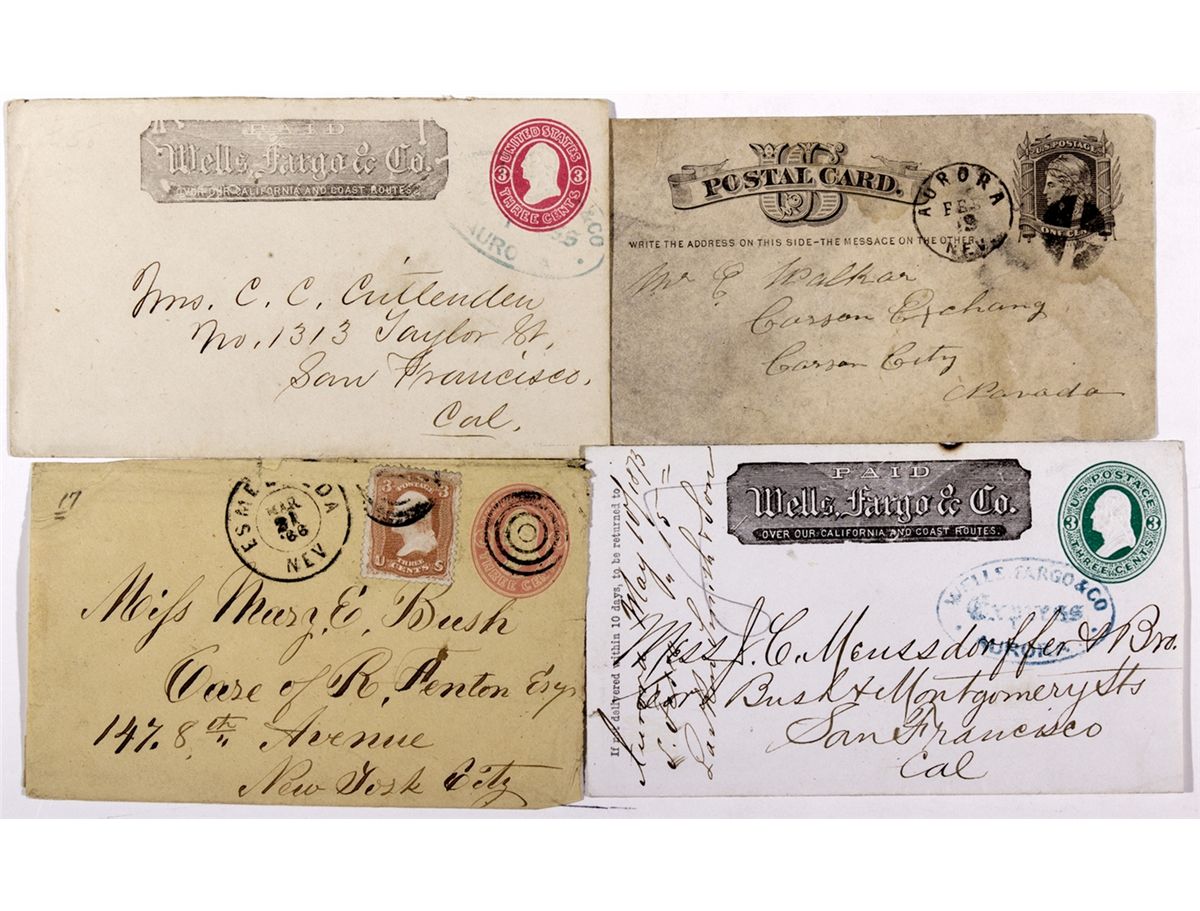 PAID
Wells, Fargo & Co.
OVER OUR CALIFORNIA AND COAST ROUTES.
UNITED STATES
3 3
THREE CENTS
& CO
AURO
Mrs. C. C. Crittenden
No. 1313 Taylor St,
San Francisco,
Cal.
U S
POSTAL CARD.
WRITE THE ADDRESS ON THIS SIDE-THE MESSAGE ON THE OTHER
AURORA
FEB
19
NEV
U.S. POSTAGE
ONE CE
Mr E Walkar
Carson Exchang
Carson City
Navada
17
ESME DA
MAR
21
'66
NEV
3 3
POSTAGE
U S
THREE
CENTS
THREE CE
Miss Mary, E, Bush
Care of R, Fenton Esqr
147. 8th Avenue
New York City
PAID
Wells, Fargo & Co.
OVER OUR CALIFORNIA AND COAST ROUTES.
U.S. POSTAGE
3 3
THREE CENTS
WELLS, FARGO & CO
Express
AURO
If not delivered within 10 days, to be returned to
May 10/1873
" 15 "
& Son
Mess J. C. Meussdorffer & Bro.
Cor Bush & Montgomery Sts
San Francisco
Cal